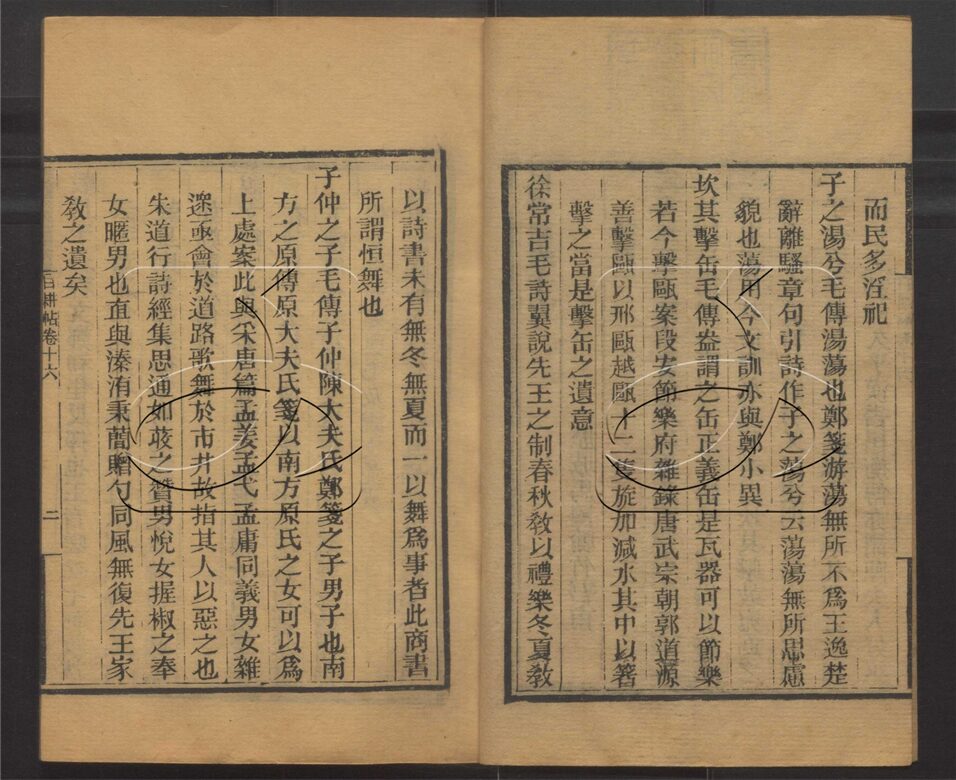 而民多淫祀
子之湯兮毛傳湯蕩也鄭箋游蕩無所不爲王逸楚
辭離騷章句引詩作子之蕩兮云蕩蕩無所思慮
貌也蕩用今文訓亦與鄭小異
坎其擊缶毛傳盎謂之缶正義缶是瓦器可以節樂
若今擊甌案段安節樂府雜錄唐武宗朝郭道源
善擊甌以邢甌越甌十二隻旋加減水其中以箸
擊之當是擊缶之遺意
徐常吉毛詩翼說先王之制春秋敎以禮樂冬夏敎
以詩書未有無冬無夏而一以舞爲事者此商書
所謂恒舞也
子仲之子毛傳子仲陳大夫氏鄭箋之子男子也南
方之原傳原大夫氏箋以南方原氏之女可以爲
上處案此與采唐篇孟姜孟弋孟庸同義男女雜
遝亟會於道路歌舞於市井故指其人以惡之也
朱道行詩經集思通如荍之贊男悅女握椒之奉
女暱男也直與溱洧秉蕑贈勺同風無復先王家
敎之遺矣
目耕帖卷十六
二